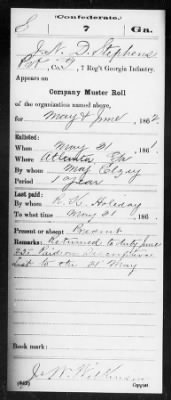 (Confederate.)
S 7 Ga.
J. N. D. Stephens
Pvt, Co. , 7 Reg't Georgia Infantry.
Appears on
Company Muster Roll
of the organization named above,
for May & June, 186
Enlisted:
When May 31, 186 .
Where Atlanta Ga
By whom Maj
Period 1 year
Last paid:
By whom R. K. Holiday
To what time May 31, 186 .
Present or absent Present
Remarks: Returned to duty June
Book mark:
J. W.
(642) Copyist.